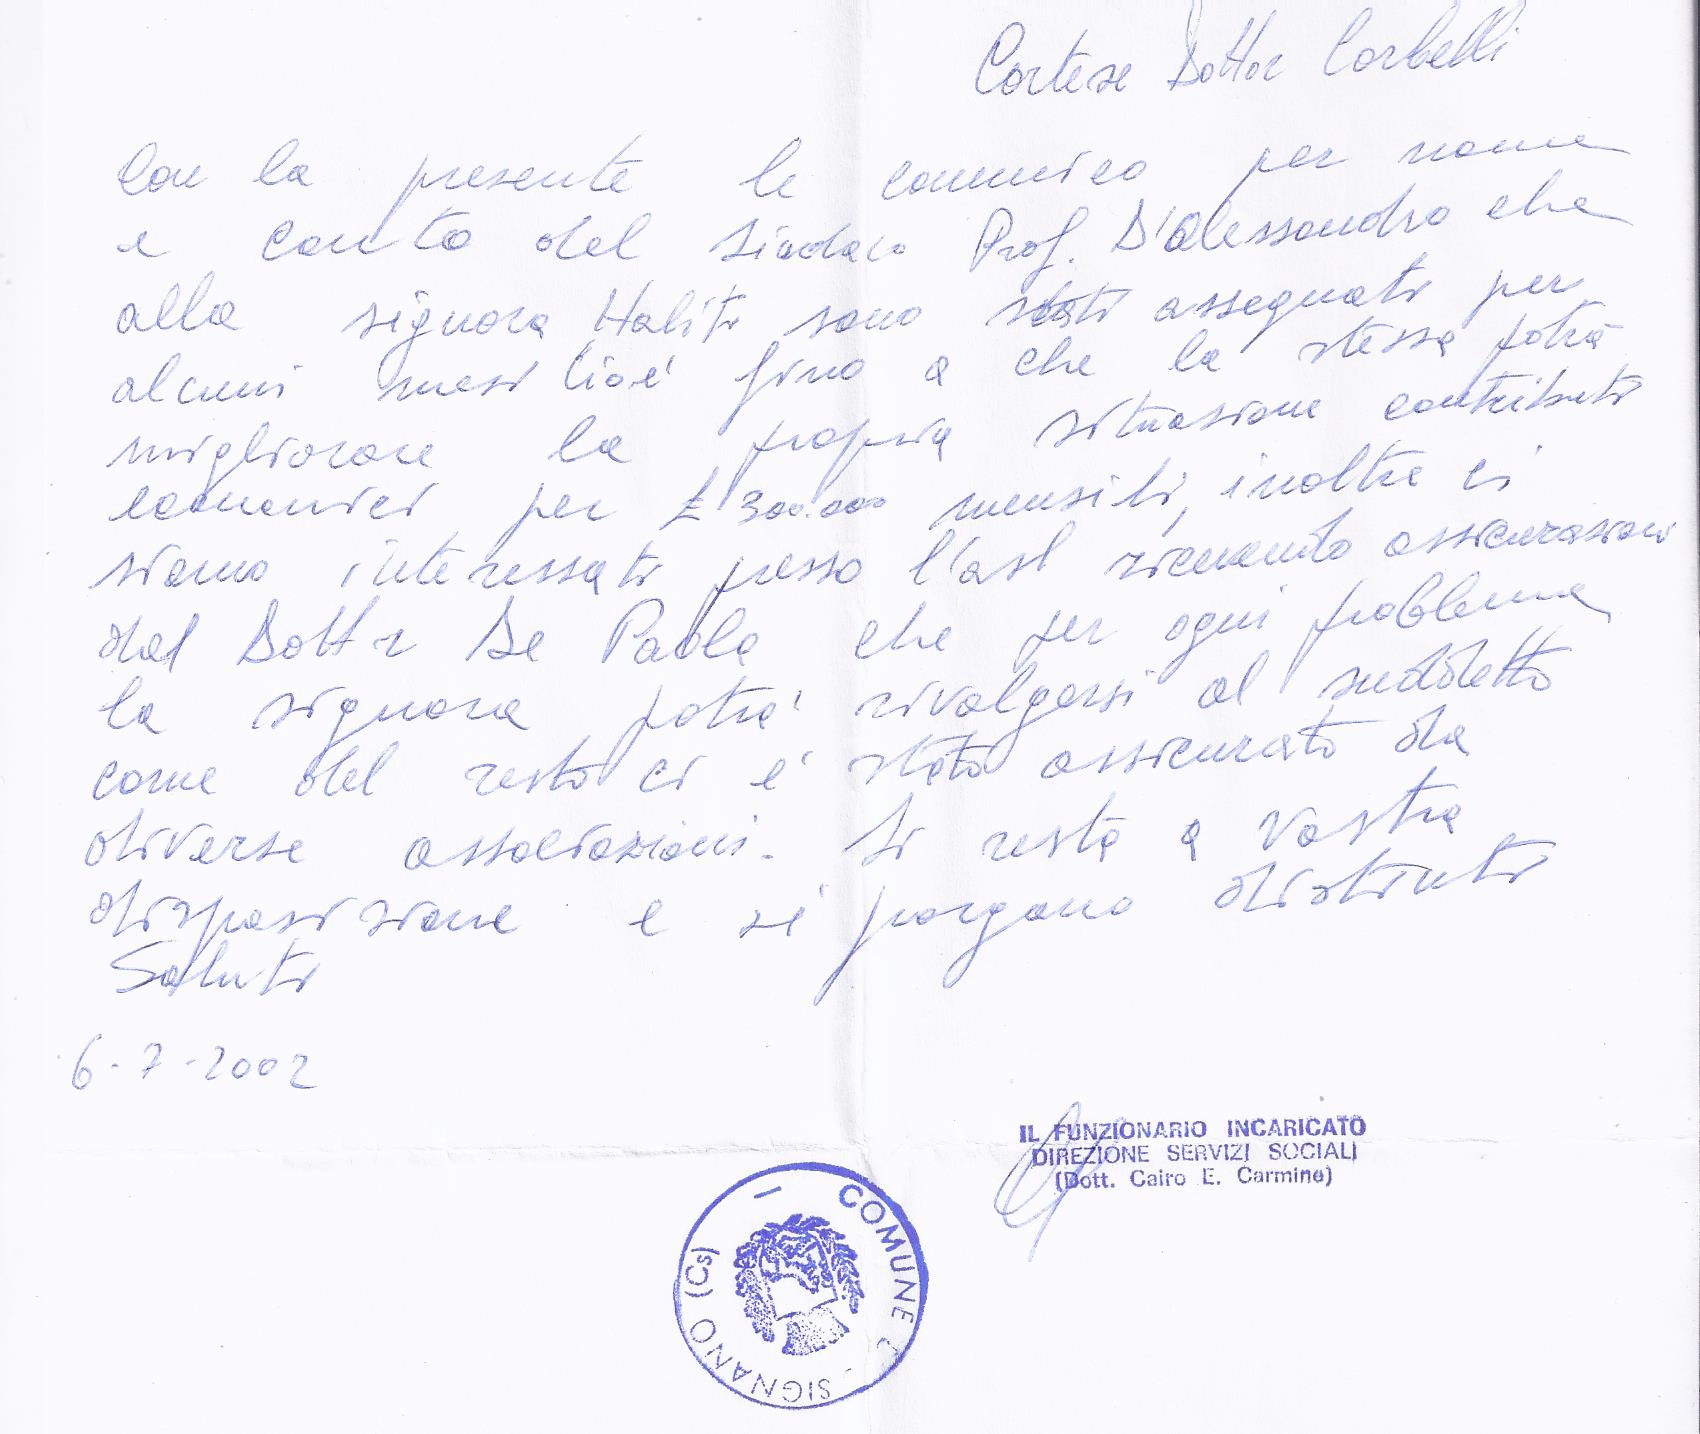 Cortese Dottor Corbelli
Con la presente le comunico per nome
e conto del Sindaco Prof. D'Alessandro che
alla signora Haliti sono stati assegnati per
alcuni mesi cioé fino a che la stessa potrà
migliorare la propria situazione contributi
economici per £ 300.000 mensili, inoltre ci
siamo interessati presso l'asl ricevendo assicurazioni
dal Dottor De Paola che per ogni problema
la signora potra' rivolgersi al suddetto
come del resto ci é stato assicurato da
diverse associazioni. Si resta a Vostra
disposizione e si porgono distinti
Saluti
6-7-2002
IL FUNZIONARIO INCARICATO
DIREZIONE SERVIZI SOCIALI
(Dott. Cairo E. Carmine)
COMUNE
SIGNANO (Cs)